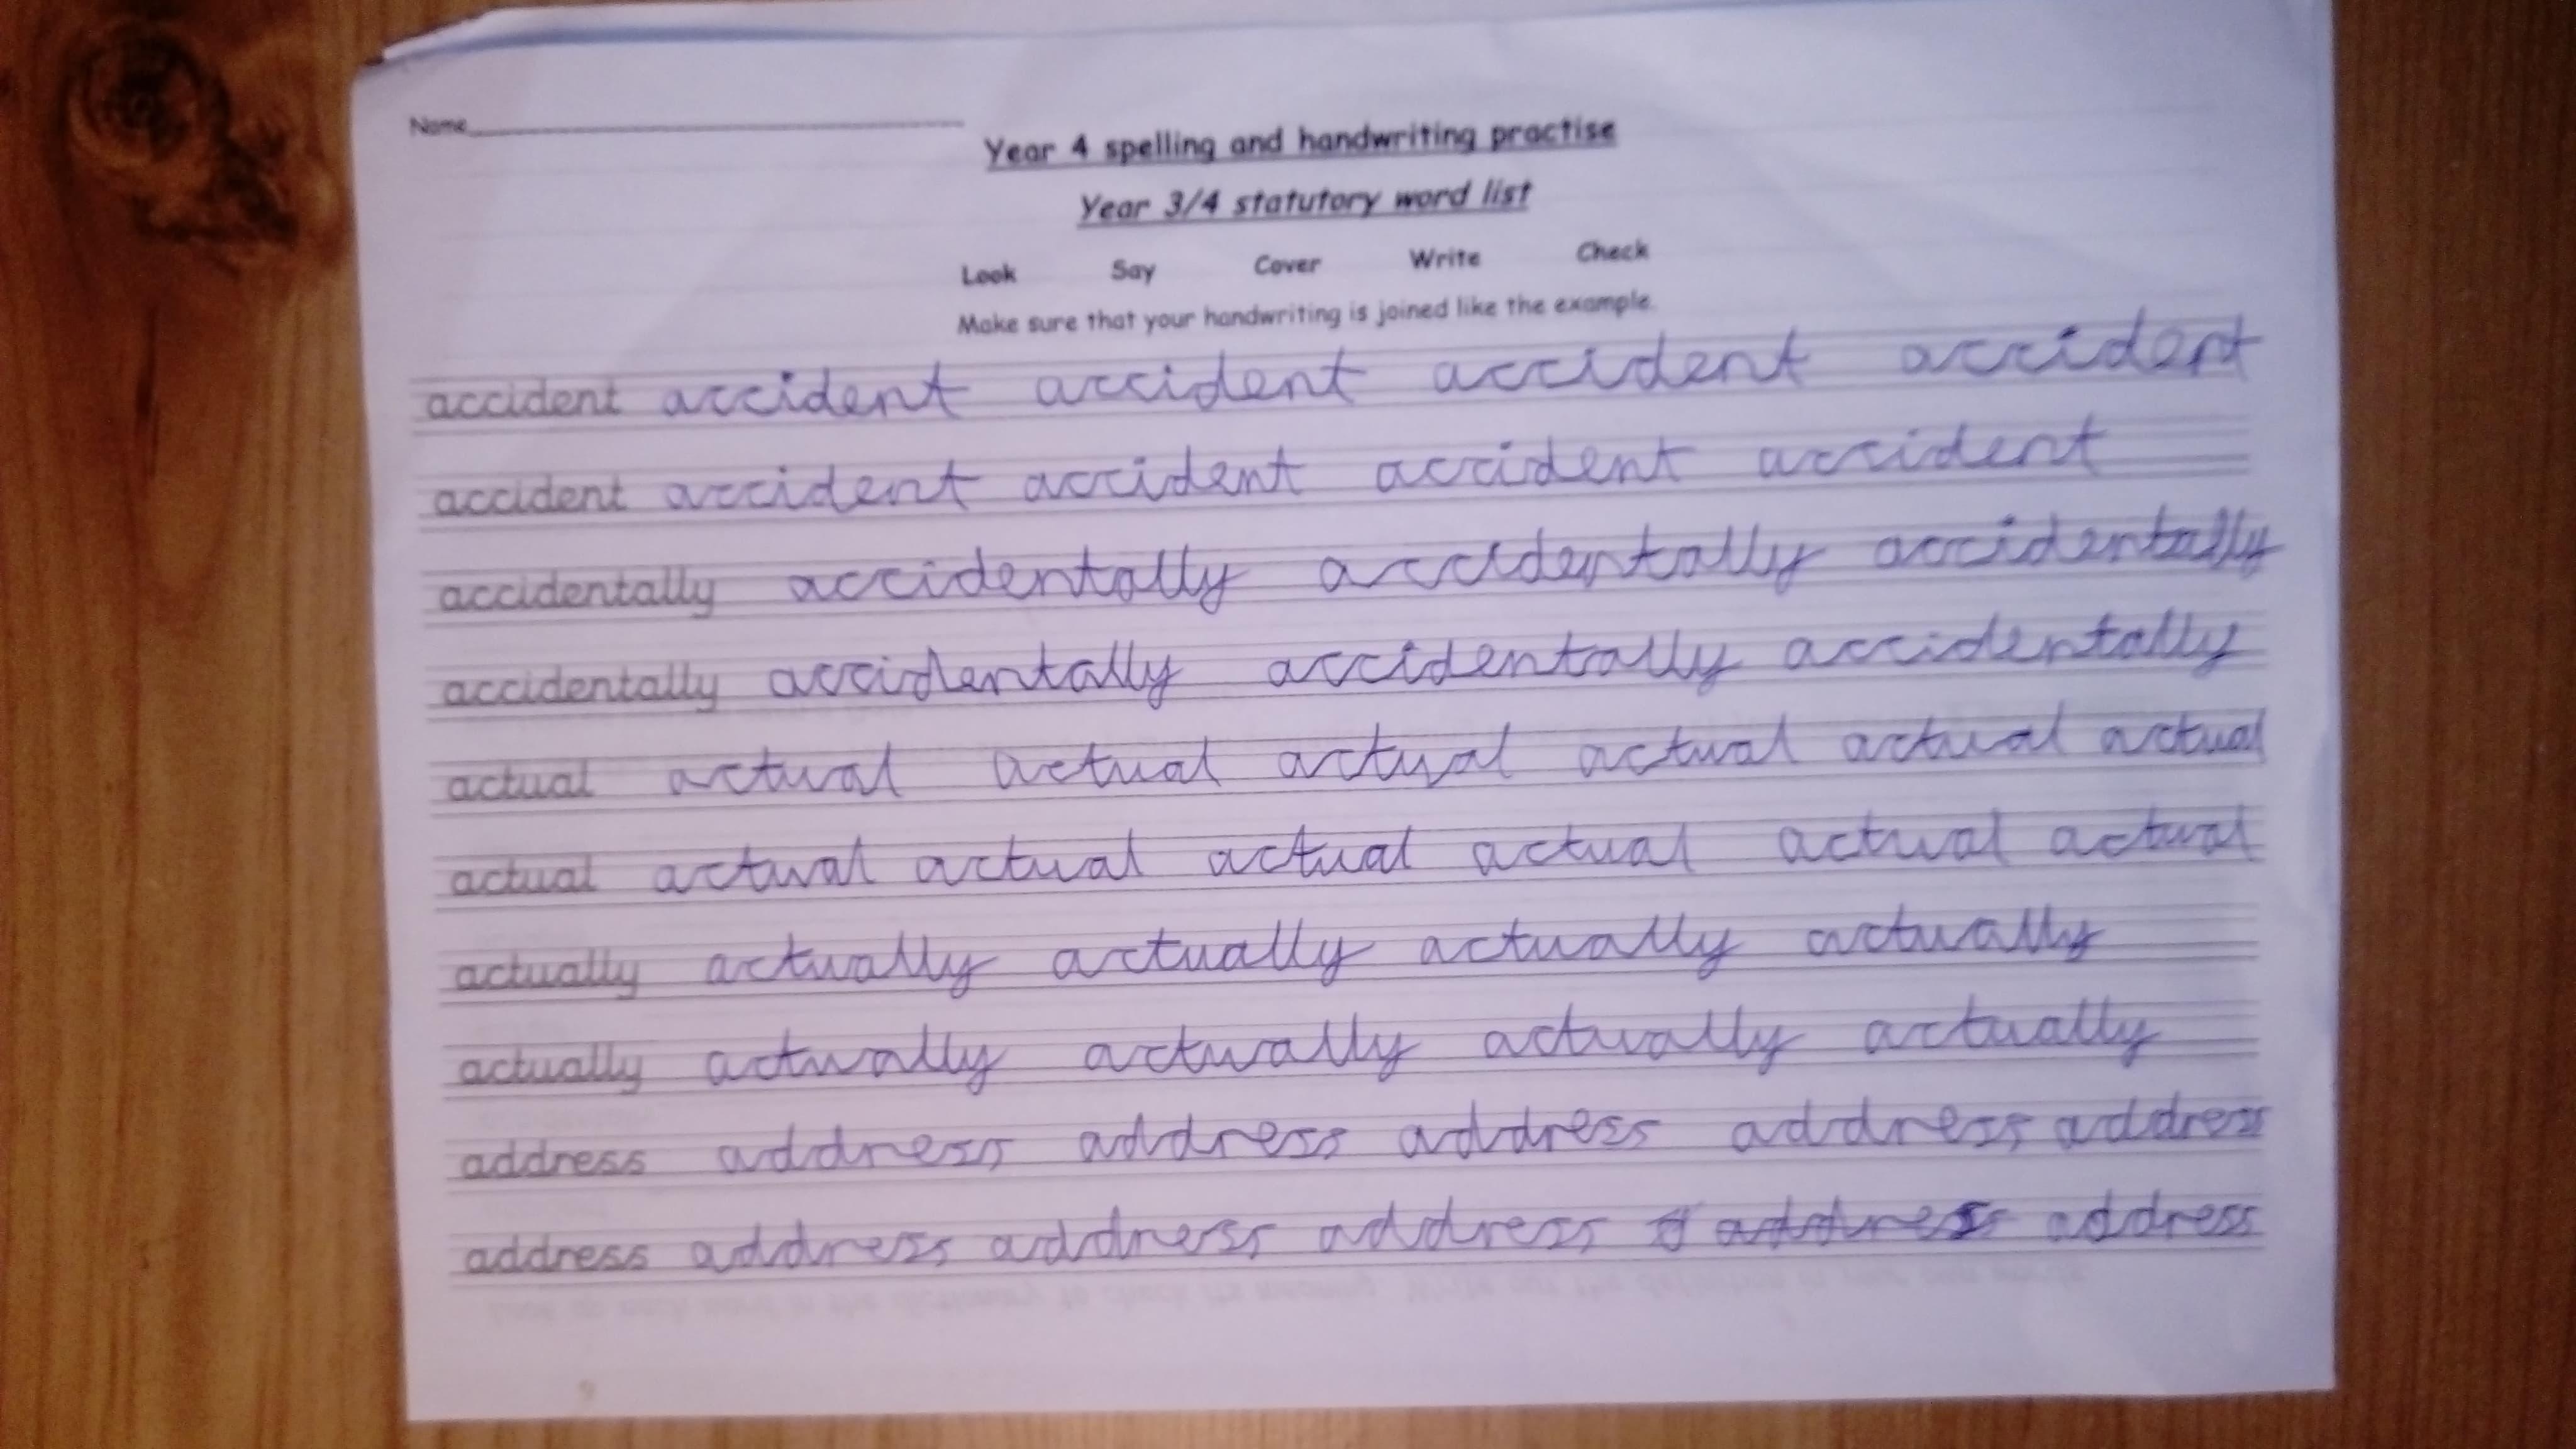 Name
Year 4 spelling and handwriting practise
Year 3/4 statutory word list
Look Say Cover Write Check
Make sure that your handwriting is joined like the example.
accident accident accident accident accident
accident accident accident accident accident
accidentally accidentally accidentally accidentally
accidentally accidentally accidentally accidentally
actual actual actual actual actual actual actual
actual actual actual actual actual actual actual
actually actually actually actually actually
actually actually actually actually actually
address address address address address address
address address address address address address